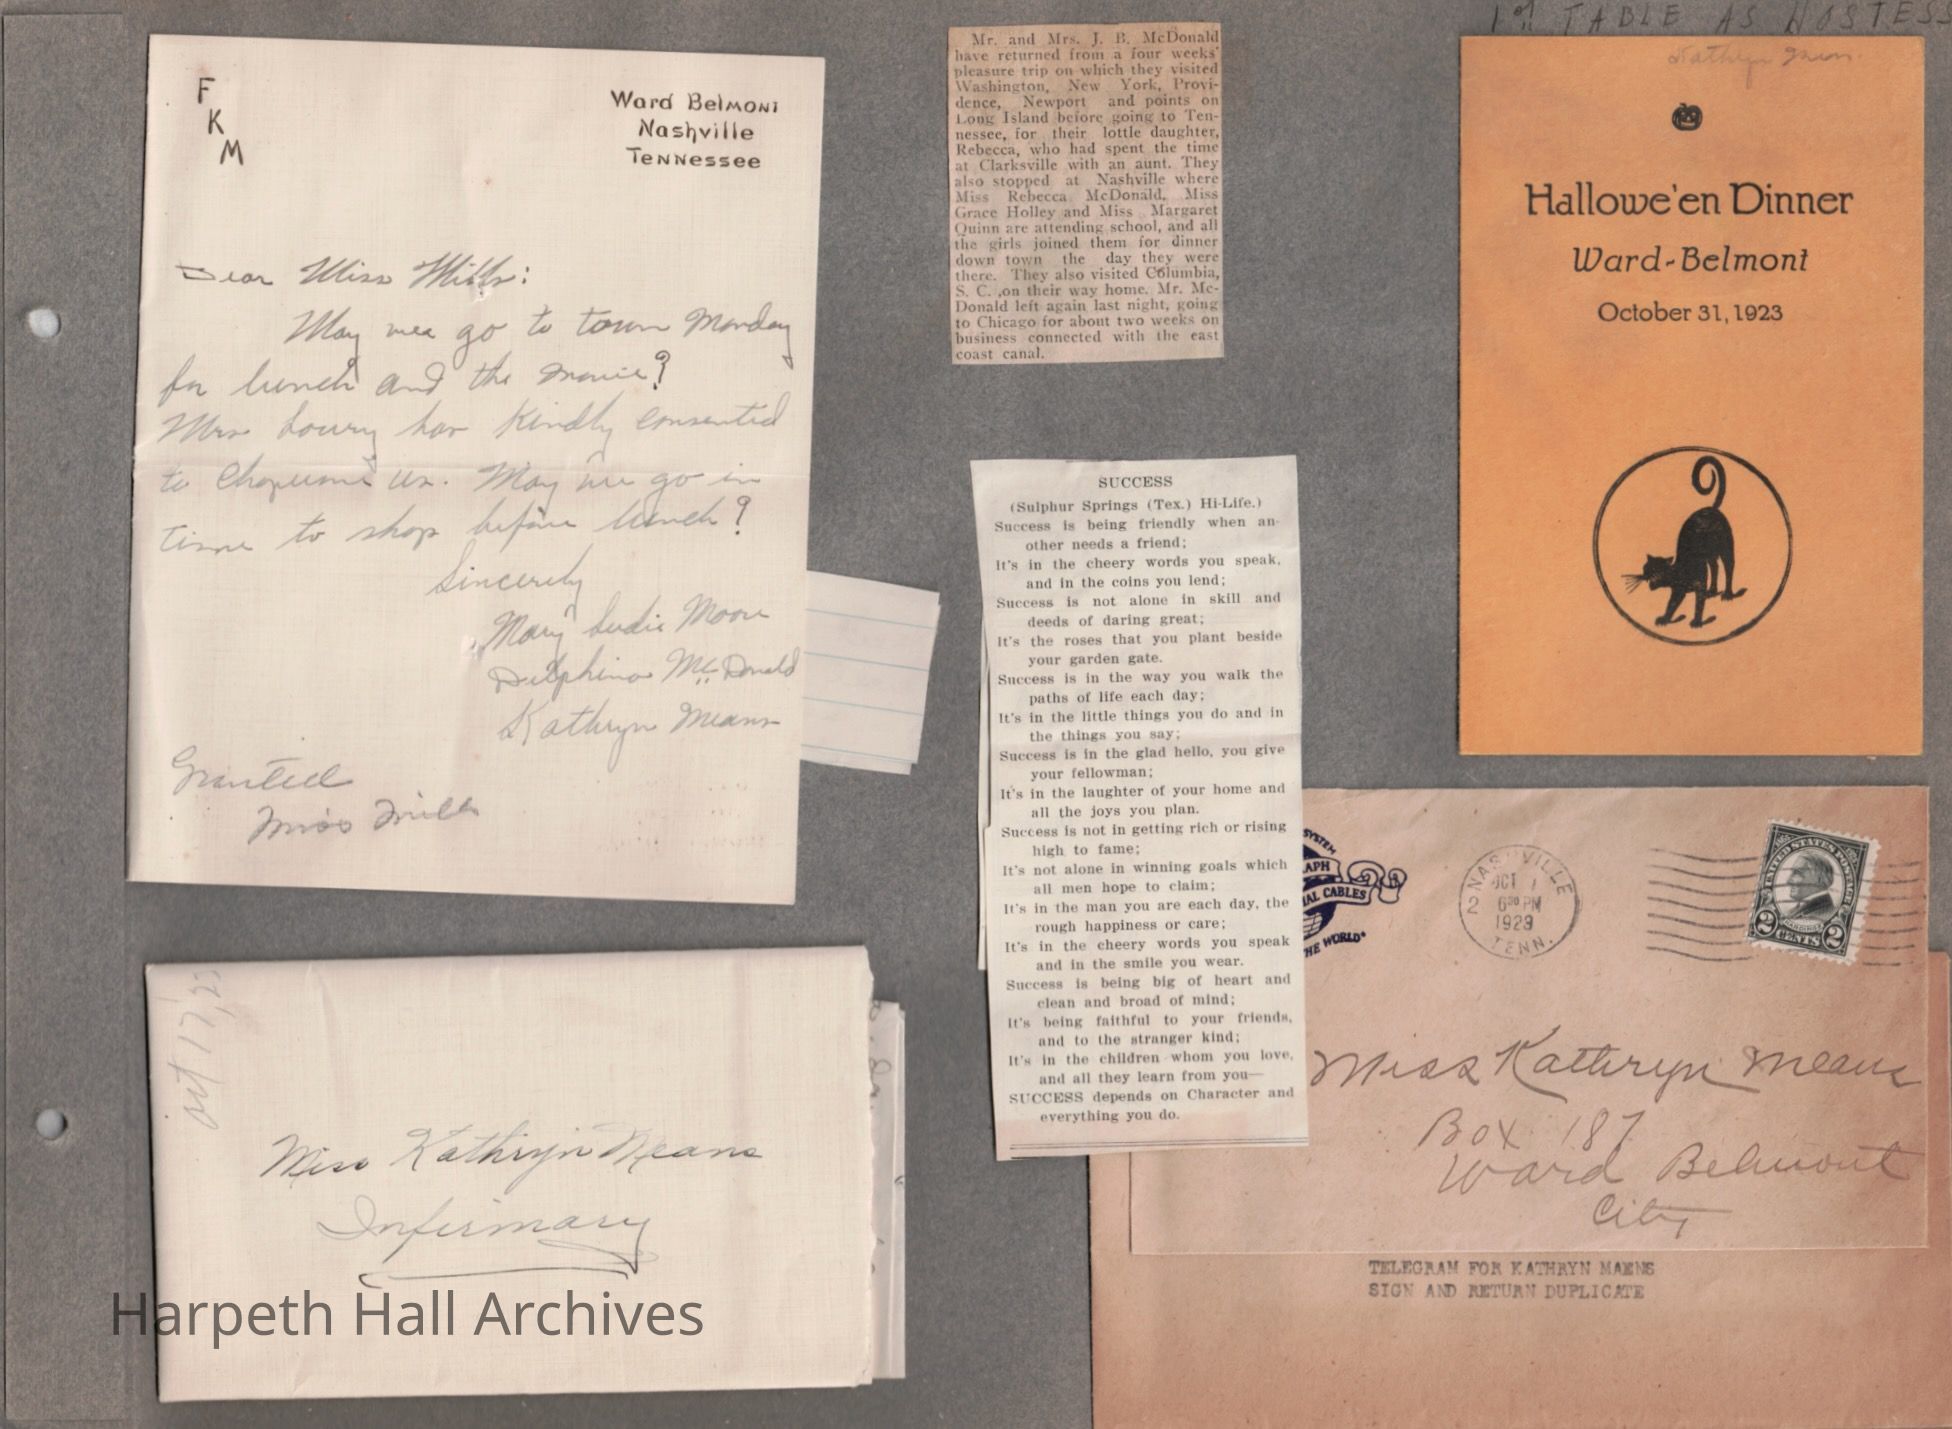 F
K
M
Ward Belmont
Nashville
Tennessee
Dear Miss Mills:
May we go to town Monday
for lunch and the movie?
Mrs Lowry has kindly consented
to Chaperone us. May we go in
time to shop before lunch?
Sincerely
Mary Ludie Moore
Delphina McDonald
Kathryn Means
Granted
Miss Mills
Mr. and Mrs. J. B. McDonald
have returned from a four weeks'
pleasure trip on which they visited
Washington, New York, Provi-
dence, Newport and points on
Long Island before going to Ten-
nessee, for their lottle daughter,
Rebecca, who had spent the time
at Clarksville with an aunt. They
also stopped at Nashville where
Miss Rebecca McDonald, Miss
Grace Holley and Miss Margaret
Quinn are attending school, and all
the girls joined them for dinner
down town the day they were
there. They also visited Columbia,
S. C. ,on their way home. Mr. Mc-
Donald left again last night, going
to Chicago for about two weeks on
business connected with the east
coast canal.
1st TABLE AS HOSTESS
Kathryn
Hallowe'en Dinner
Ward-Belmont
October 31, 1923
SUCCESS
(Sulphur Springs (Tex.) Hi-Life.)
Success is being friendly when an-
other needs a friend;
It's in the cheery words you speak,
and in the coins you lend;
Success is not alone in skill and
deeds of daring great;
It's the roses that you plant beside
your garden gate.
Success is in the way you walk the
paths of life each day;
It's in the little things you do and in
the things you say;
Success is in the glad hello, you give
your fellowman;
It's in the laughter of your home and
all the joys you plan.
Success is not in getting rich or rising
high to fame;
It's not alone in winning goals which
all men hope to claim;
It's in the man you are each day, the
rough happiness or care;
It's in the cheery words you speak
and in the smile you wear.
Success is being big of heart and
clean and broad of mind;
It's being faithful to your friends,
and to the stranger kind;
It's in the children whom you love,
and all they learn from you—
SUCCESS depends on Character and
everything you do.
Oct 17, 23
Miss Kathryn Means
Infirmary
SYSTEM
APH
IAL CABLES
HE WORLD"
NASHVILLE
OCT 7
2 630 PM
1923
TENN.
UNITED STATES POSTAGE
2 CENTS 2
Miss Kathryn Means
Box 187
Ward Belmont
City
TELEGRAM FOR KATHRYN MAENS
SIGN AND RETURN DUPLICATE
Harpeth Hall Archives